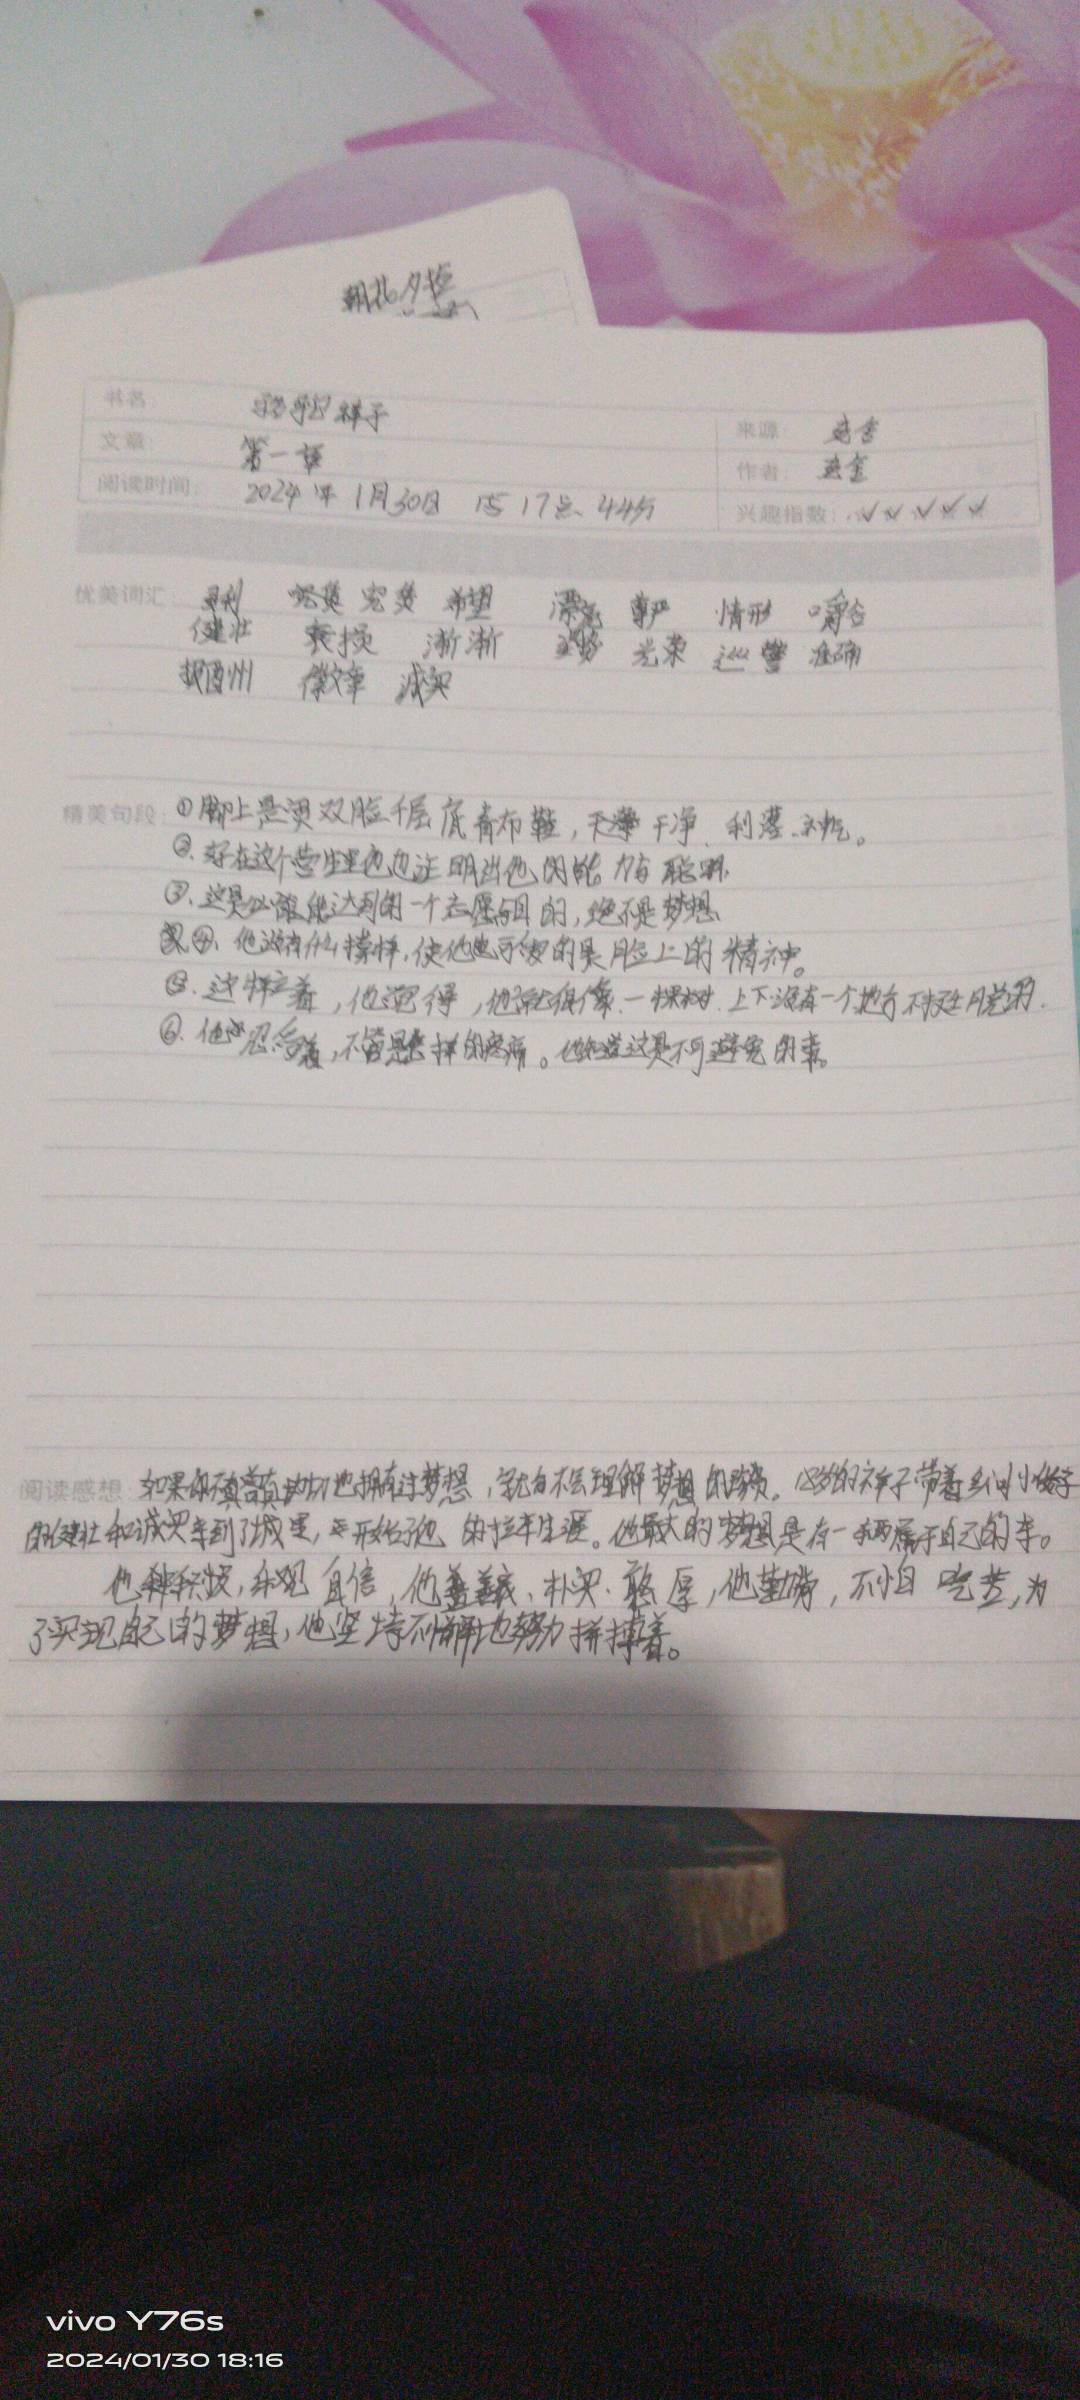 朝花夕拾
书名 骆驼祥子
来源: 老舍
文章: 第一章
作者: 老舍
阅读时间: 2024年1月30日 17点44分
兴趣指数: ✓✓✓✓✓
优美词汇: 希望 漂亮 尊严 情形
健壮 渐渐 光荣 巡警 准确
徽章 诚实
精美句段: ①脚上是 双脸千层底青布鞋, 干净 利落 神气。
②. 好在这个营生里也 证明出他的能力与聪明.
③. 这是 能达到的一个志愿与目的, 绝不是梦想.
④. 他没有什么模样, 使他 可爱的是脸上的精神。
⑤. 这样立着, 他觉得, 他就很像一棵树. 上下没有一个地方不挺 脱的.
⑥. 他 忍受着, 不管是怎样的疼痛。他知道这是不可避免的事。
阅读感想: 如果你不 真切地拥有过梦想, 就 不会理解梦想的 。18岁的祥子带着乡间小伙子
的健壮和诚实来到了城里, 开始了他的拉车生涯。他最大的梦想是有一辆属于自己的车。
他 , 乐观 自信, 他 、朴实、憨厚, 他勤劳, 不怕吃苦, 为
了实现自己的梦想, 他坚持不懈地努力拼搏着。
vivo Y76s
2024/01/30 18:16